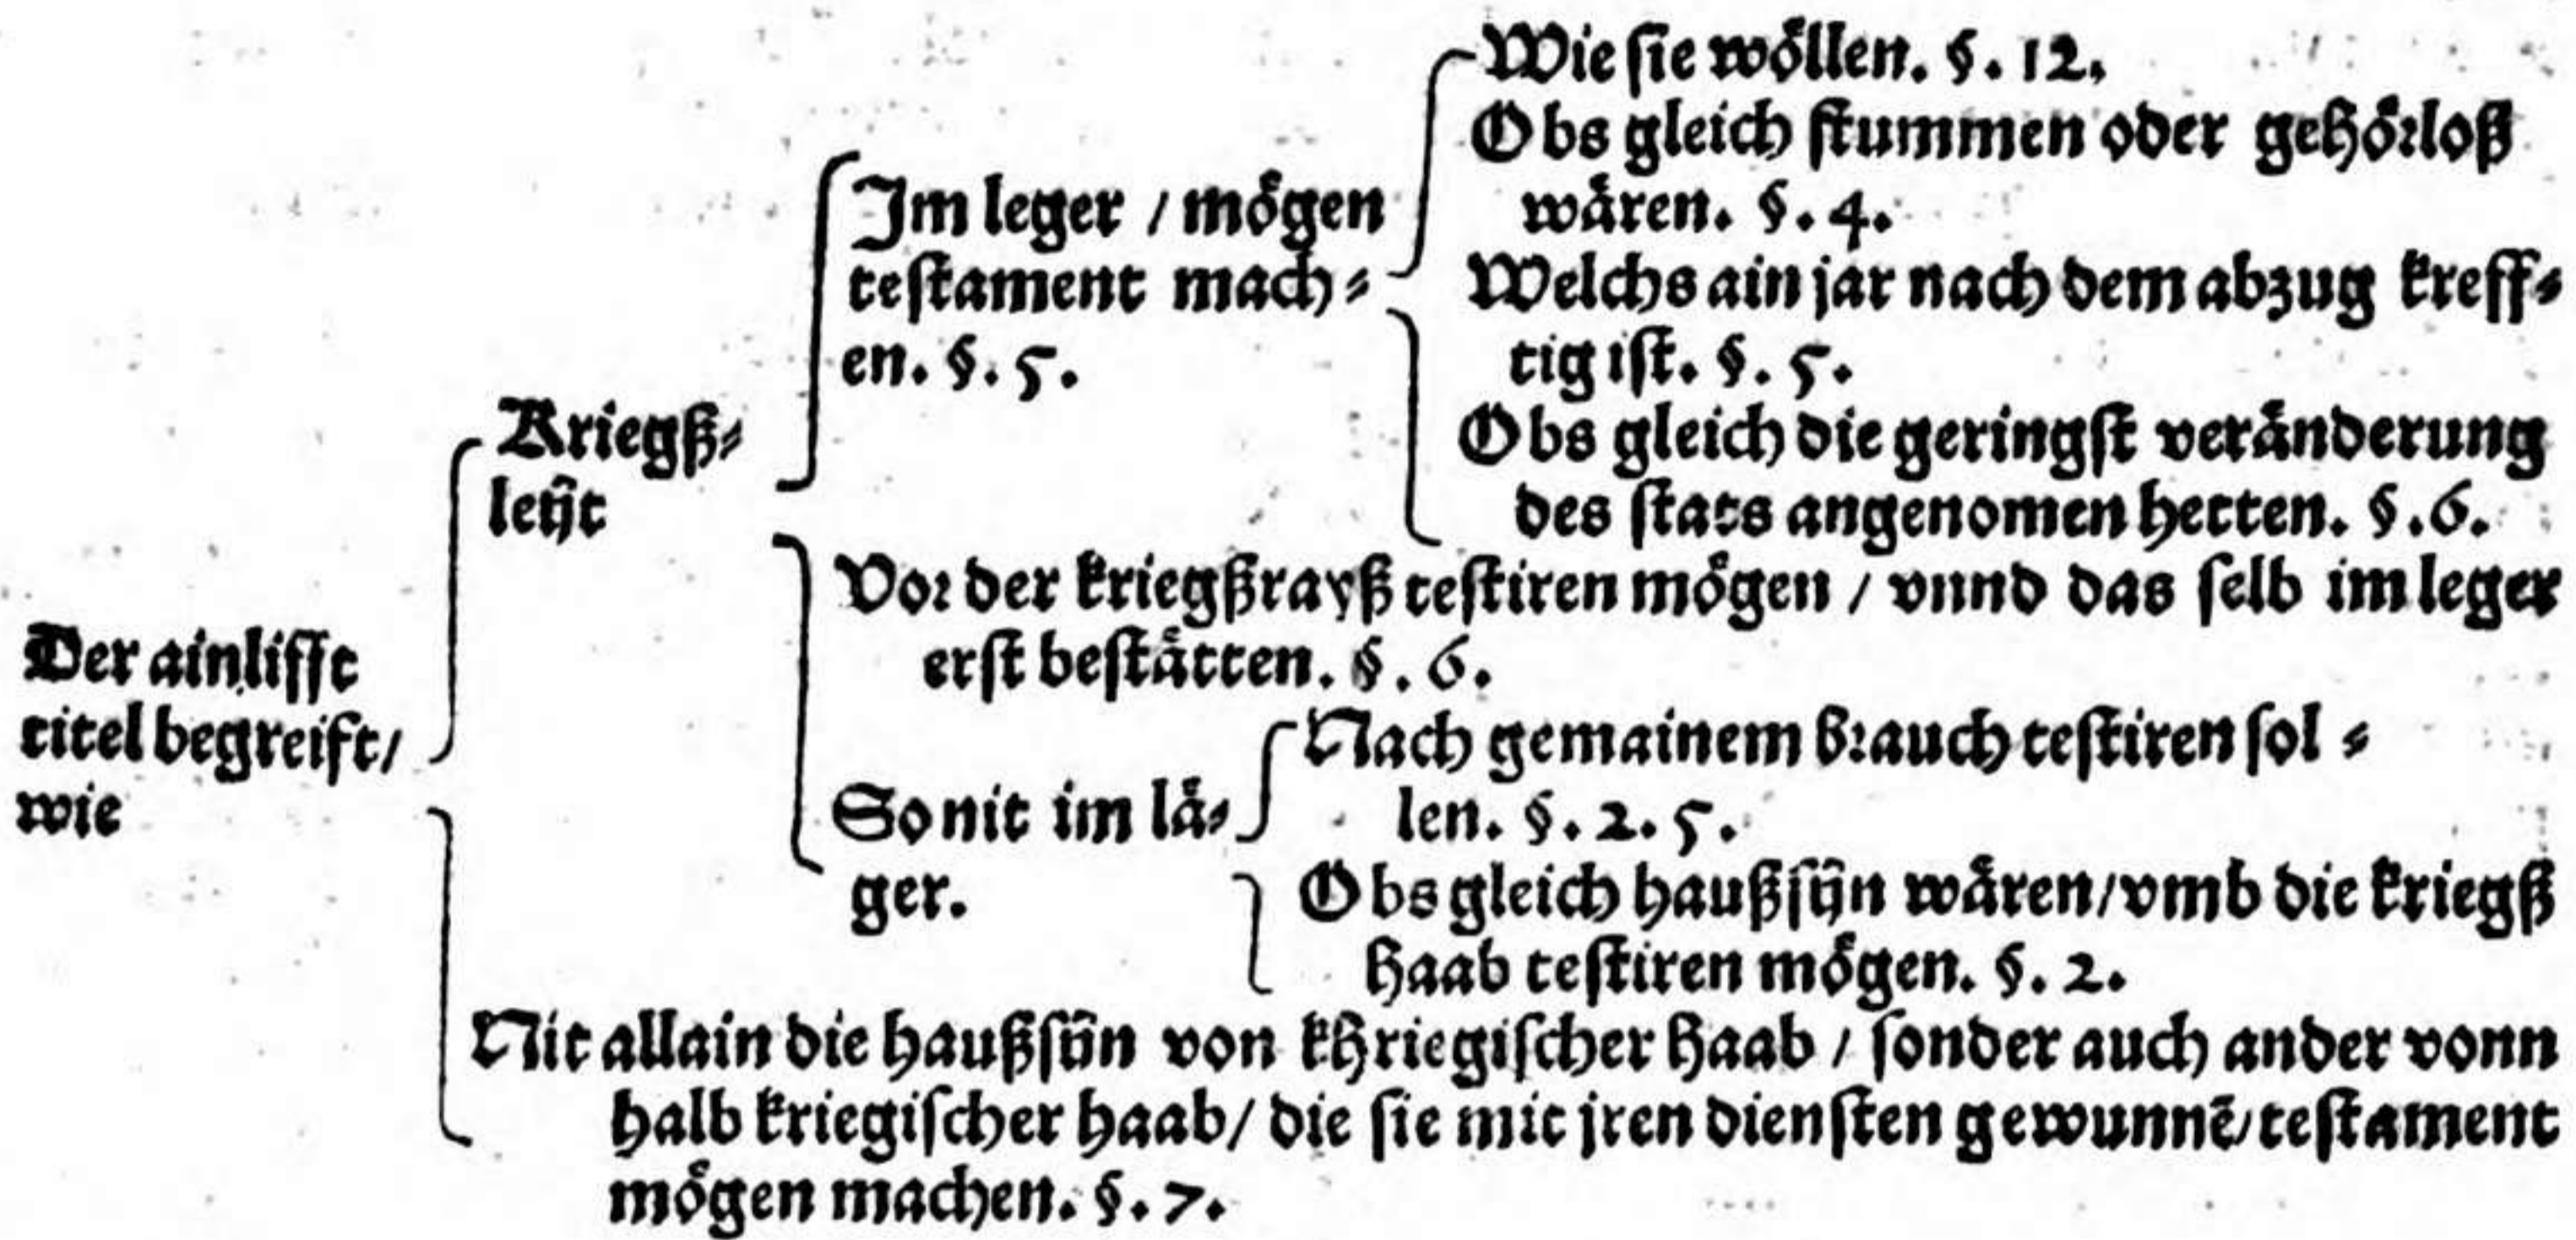 Der ainlifft
titel begreift/
wie
Kriegß⸗
leŷt
Im leger / mögen
testament mach⸗
en. §. 5.
Wie sie wöllen. §. 12.
Obs gleich stummen oder gehörloß
wären. §. 4.
Welchs ain jar nach dem abzug kreff⸗
tig ist. §. 5.
Obs gleich die geringst veränderung
des stats angenomen hetten. §. 6.
Vor der kriegßrayß testiren mögen / vnnd das selb im leger
erst bestätten. §. 6.
So nit im lä⸗
ger.
Nach gemainem brauch testiren sol⸗
len. §. 2. 5.
Obs gleich haußsŷn wären/vmb die kriegß
haab testiren mögen. §. 2.
Nit allain die haußsün von khriegischer haab / sonder auch ander vonn
halb kriegischer haab/ die sie mit jren diensten gewunnē/testament
mögen machen. §. 7.